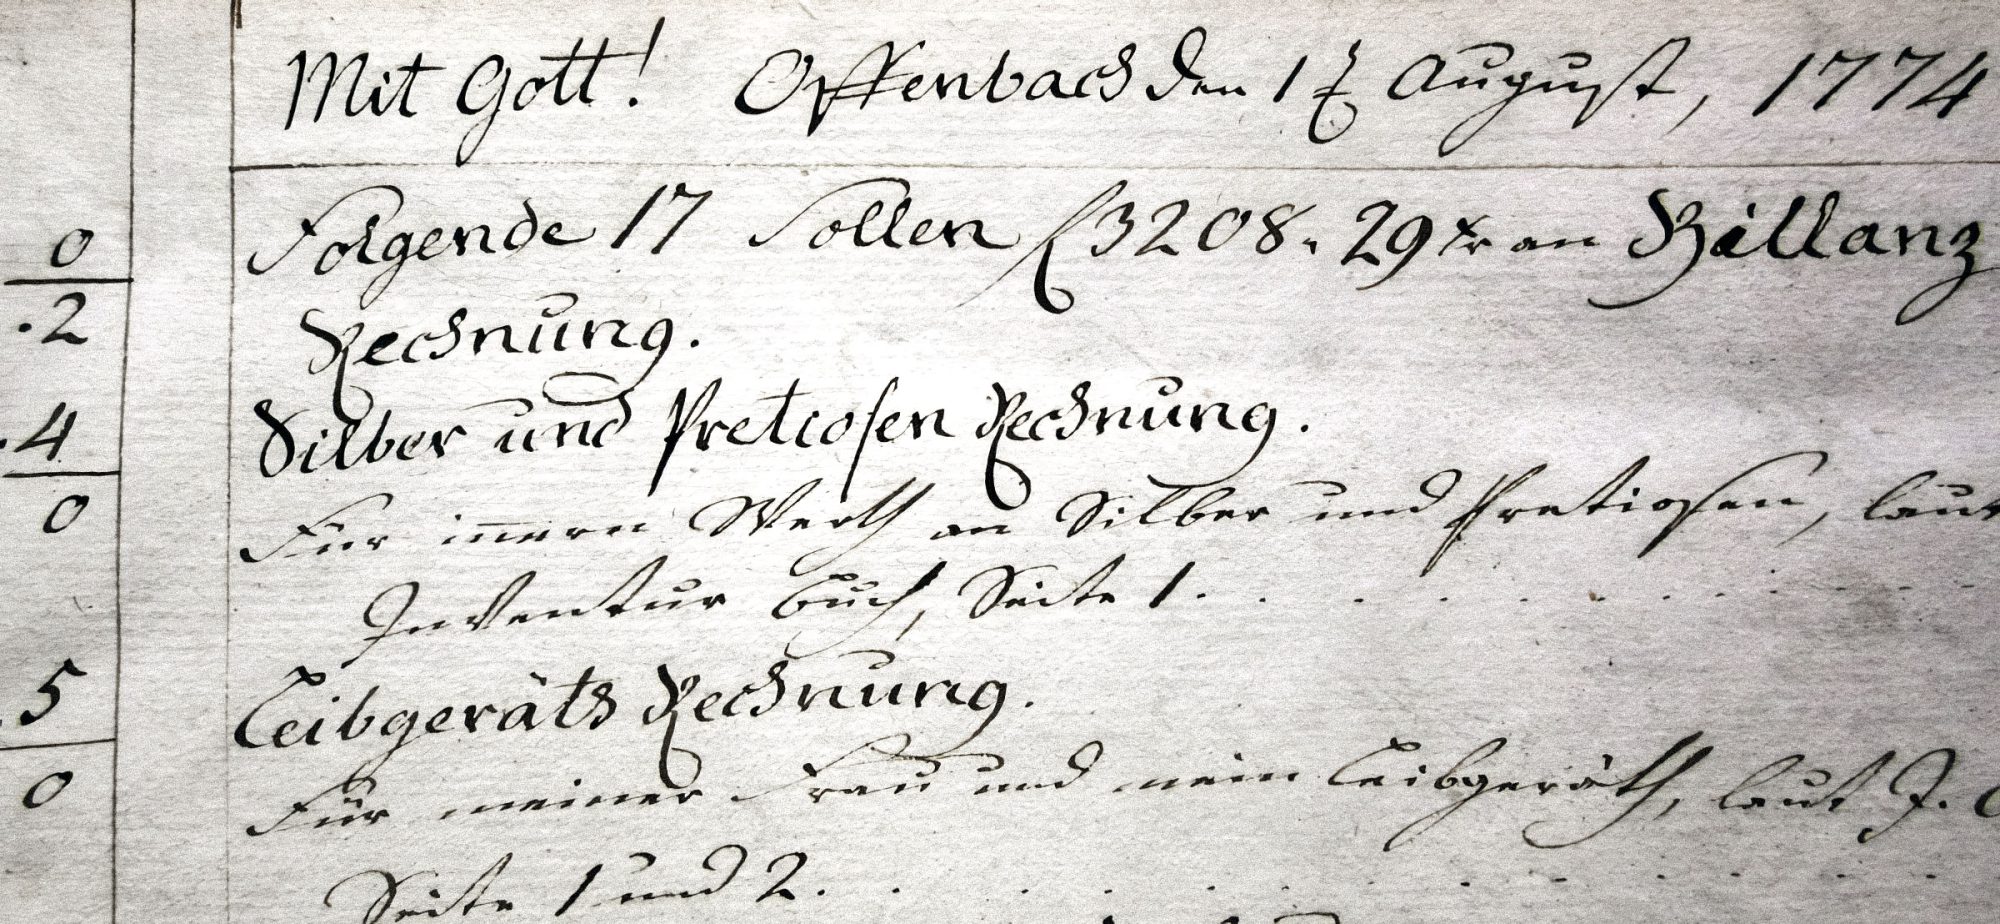 Mit Gott! Offenbach den 1 t August, 1774
Folgende 17 Sollen f 3208. 29 xr an Billanz
0
Rechnung.
.2
Silber und Pretiosen Rechnung.
.4
Für innern Werth an Silber und Pretiosen, laut
0
Inventur Buch, Seite 1. . . . . . . . . .
Leibgeräts Rechnung.
.5
Für meiner Frau und mein Leibgeräth, laut J.
0
Seite 1 und 2. . . . . . . . . . .